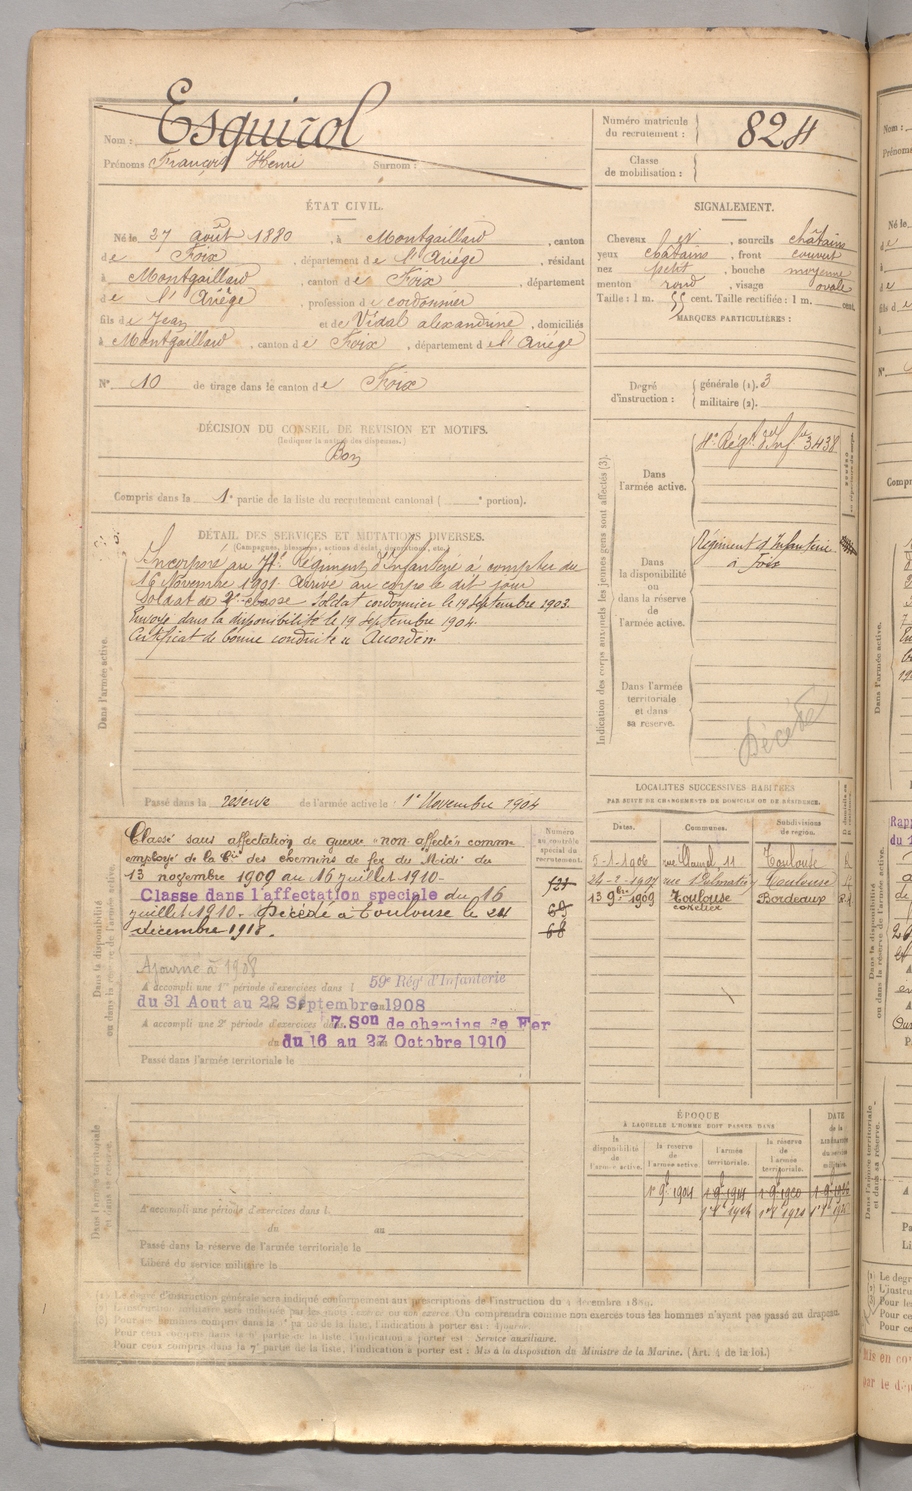 Nom : Esquirol
Prénoms François Henri Surnom :
Numéro matricule
du recrutement : 824
Classe
de mobilisation :
ÉTAT CIVIL.
Né le 27 août 1880, à Montgaillard, canton
de Foix, département de l'Ariège, résidant
à Montgaillard, canton de Foix, département
de l'Ariège, profession de cordonnier
fils de Jean et de Vidal alexandrine, domiciliés
à Montgaillard, canton de Foix, département de l'Ariège
N° 10 de tirage dans le canton de Foix
SIGNALEMENT.
Cheveux, sourcils châtains
yeux châtains, front couvert
nez petit, bouche moyenne
menton rond, visage ovale
Taille : 1 m. 55 cent. Taille rectifiée : 1 m. cent.
MARQUES PARTICULIÈRES :
Degré
d'instruction :
générale (1). 3
militaire (2).
DÉCISION DU CONSEIL DE REVISION ET MOTIFS.
(Indiquer la nature des dispenses.)
Bon
Compris dans la 1e partie de la liste du recrutement cantonal ( e portion).
DÉTAIL DES SERVICES ET MUTATIONS DIVERSES.
(Campagnes, blessures, actions d'éclat, décorations, etc.)
Dans l'armée active.
Incorporé au Régiment d'Infanterie à compter du
16 Novembre 1901. Arrivé au corps le dit jour
Soldat de 2e classe Soldat cordonnier le 19 septembre 1903.
Envoyé dans la disponibilité le 19 septembre 1904.
Certificat de bonne conduite "Accordé".
Passé dans la réserve de l'armée active le 1er Novembre 1904
Indication des corps auxquels les jeunes gens sont affectés (3).
Dans
l'armée active.
Régt d'Infie 3438
Dans
la disponibilité
ou
dans la réserve
de
l'armée active.
Régiment d'Infanterie
à Foix
Dans l'armée
territoriale
et dans
sa réserve.
Décédé
Dans la disponibilité
ou dans la réserve de l'armée active.
Classé sans affectation de guerre "non affecté" comme
employé de la Cie des chemins de fer du Midi du
13 novembre 1909 au 16 juillet 1910.
Classé dans l'affectation spéciale du 16
juillet 1910. Décédé à Toulouse le 24
décembre 1918.
Numéro
au contrôle
spécial du
recrutement.
68
Ajourné à 1908
A accompli une 1re période d'exercices dans l 59e Rég' d'Infanterie
du 31 Aout au 22 Septembre 1908
A accompli une 2e période d'exercices dans 7 Son de chemins de Fer
du 16 au 27 Octobre 1910
Passé dans l'armée territoriale le
LOCALITÉS SUCCESSIVES HABITÉES
PAR SUITE DE CHANGEMENTS DE DOMICILE OU DE RÉSIDENCE.
Dates. Communes. Subdivisions
de région.
5-1-1906 Toulouse
1907 Toulouse
13 9bre 1909 Toulouse Bordeaux
Dans l'armée territoriale
et dans sa réserve.
A accompli une période d'exercices dans l
du au
Passé dans la réserve de l'armée territoriale le
Libéré du service militaire le
ÉPOQUE
À LAQUELLE L'HOMME DOIT PASSER DANS
DATE
de la
LIBÉRATION
du service
militaire.
la
disponibilité
de
l'armée active.
la réserve
de
l'armée active.
l'armée
territoriale.
la réserve
de
l'armée
territoriale.
1er 9bre 1904
(1) Le degré d'instruction générale sera indiqué conformément aux prescriptions de l'instruction du 4 décembre 1889.
(2) L'instruction militaire sera indiquée par les mots : exercé ou non exercé. On comprendra comme non exercés tous les hommes n'ayant pas passé au drapeau.
(3) Pour les hommes compris dans la 1re partie de la liste, l'indication à porter est : Ajourné.
Pour ceux compris dans la 6e partie de la liste, l'indication à porter est Service auxiliaire.
Pour ceux compris dans la 7e partie de la liste, l'indication à porter est : Mis à la disposition du Ministre de la Marine. (Art. 4 de la loi.)